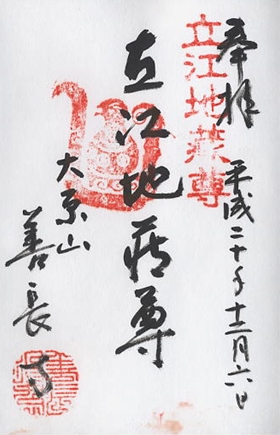 奉拝
平成二十年十二月六日
立江地蔵尊
立江地蔵尊
大京山
善長寺